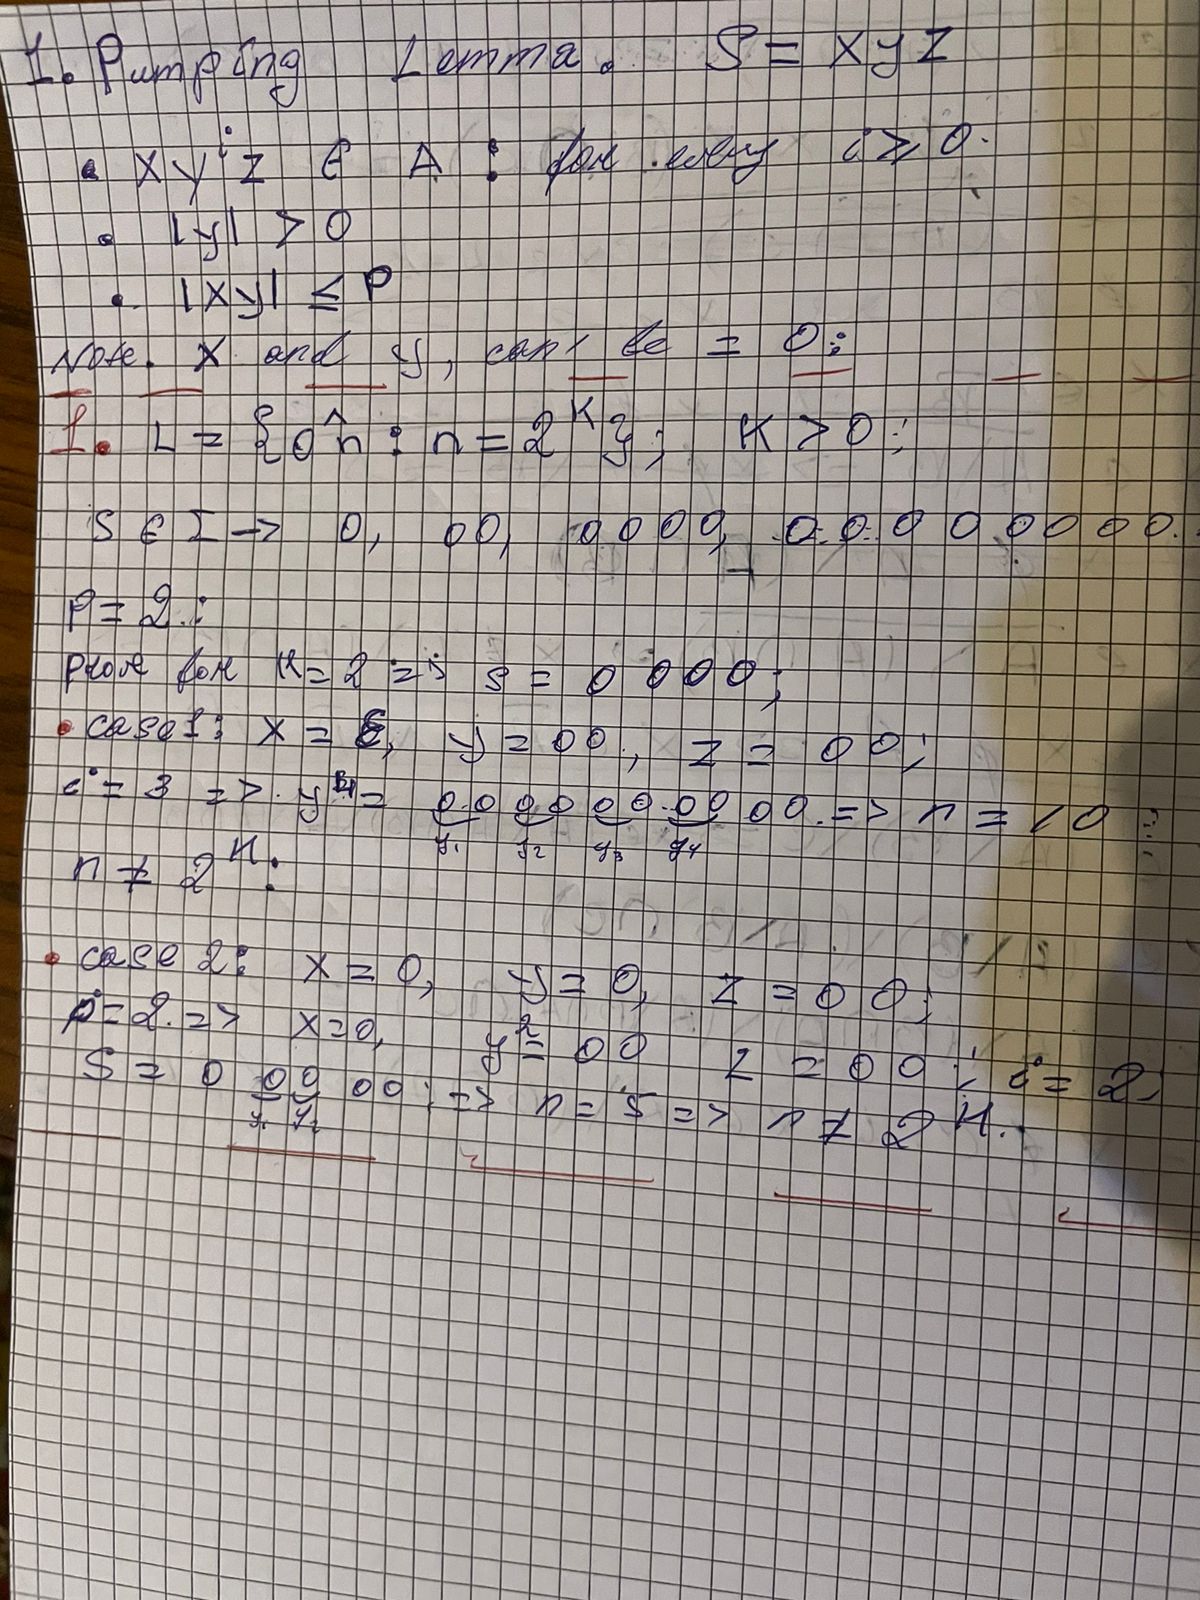 1. Pumping Lemma. S = xyz
• xyⁱz ∈ A : for every i ≥ 0.
• |y| > 0
• |xy| ≤ P
Note. x and y, can't be = 0;
1. L = {0^n : n = 2^K}; K > 0;
S ∈ Σ -> 0, 00, 0000, 00000000.
P = 2.:
prove for K = 2 => S = 0000;
• case 1: x = ε, y = 00, z = 00;
i = 3 => y⁴ = 00 00 00 00 00. => n = 10
y₁ y₂ y₃ y₄
n ≠ 2^K:
• case 2: x = 0, y = 0, z = 00;
p = 2. => x = 0, y² = 00 z = 00; i = 2;
S = 0 00 00; => n = 5 => n ≠ 2^K.
y₁ y₂